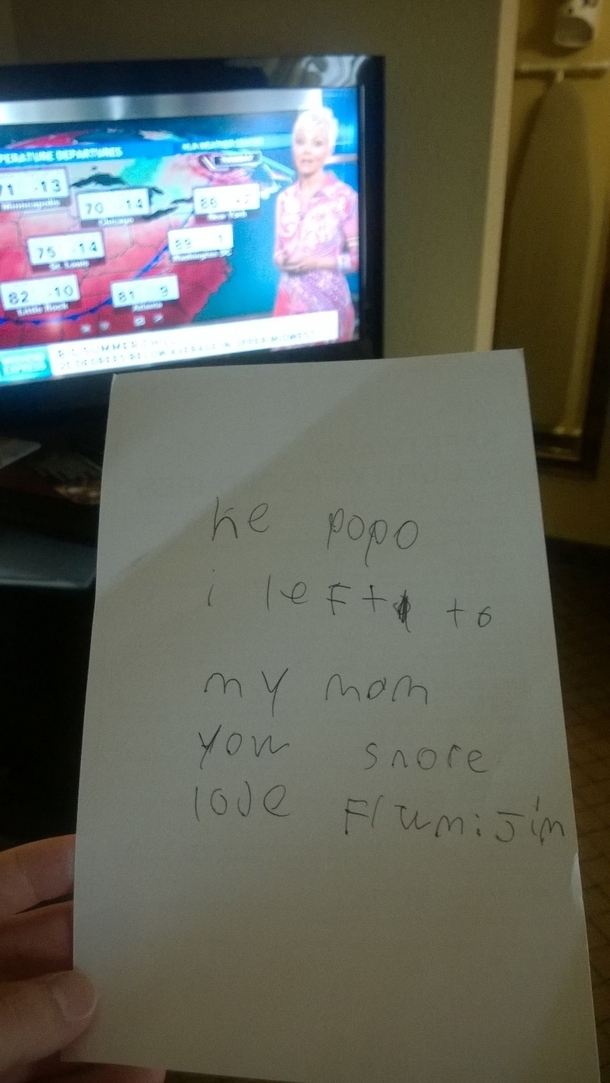 PERATURE DEPARTURES
71 -13
Minneapolis
70 -14
Chicago
86 -2
New York
75 -14
St. Louis
89 1
Washington DC
82 -10
Little Rock
81 -9
Atlanta
he popo
i left to
my mom
you snore
love Flumijim